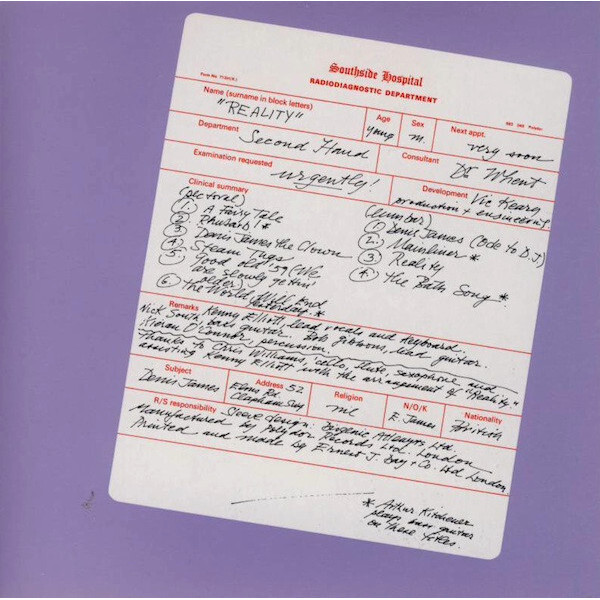 Southside Hospital
RADIODIAGNOSTIC DEPARTMENT
Name (surname in block letters)
"REALITY"
Age
young
Sex
m.
Next appt.
very soon
Department
Second Hand
Consultant
Dr. Wheat
Examination requested
urgently!
Development Vic Keary
production + engineering.
Clinical summary
(pectoral)
1. A Fairy Tale
2. Rhubarb! *
3. Denis James the Clown
4. Steam Tugs
5. Good Old '59 (We
are slowly gettin'
older)
6. The World Will End
Yesterday. *
(lumbar)
1. Denis James (Ode to D.J)
2. Mainliner *
3. Reality
4. The Bath Song *
Remarks Kenny Elliott, lead vocals and keyboard.
Nick South, bass guitar. Bob Gibbons, lead guitar.
Kieran O'Connor, percussion.
Thanks to Chris Williams, 'cello, flute, saxophone and
assisting Kenny Elliott with the arrangement of "Reality."
Subject
Denis James
Address 52
Elms Rd
Clapham
Religion
nil
N/O/K
E. James
Nationality
British
R/S responsibility Sleeve design:
Manufactured by Polydor Records Ltd. London
Printed and made by Ernest J. Day + Co. Ltd London
* Arthur Kitchener
plays bass guitar
on these titles.